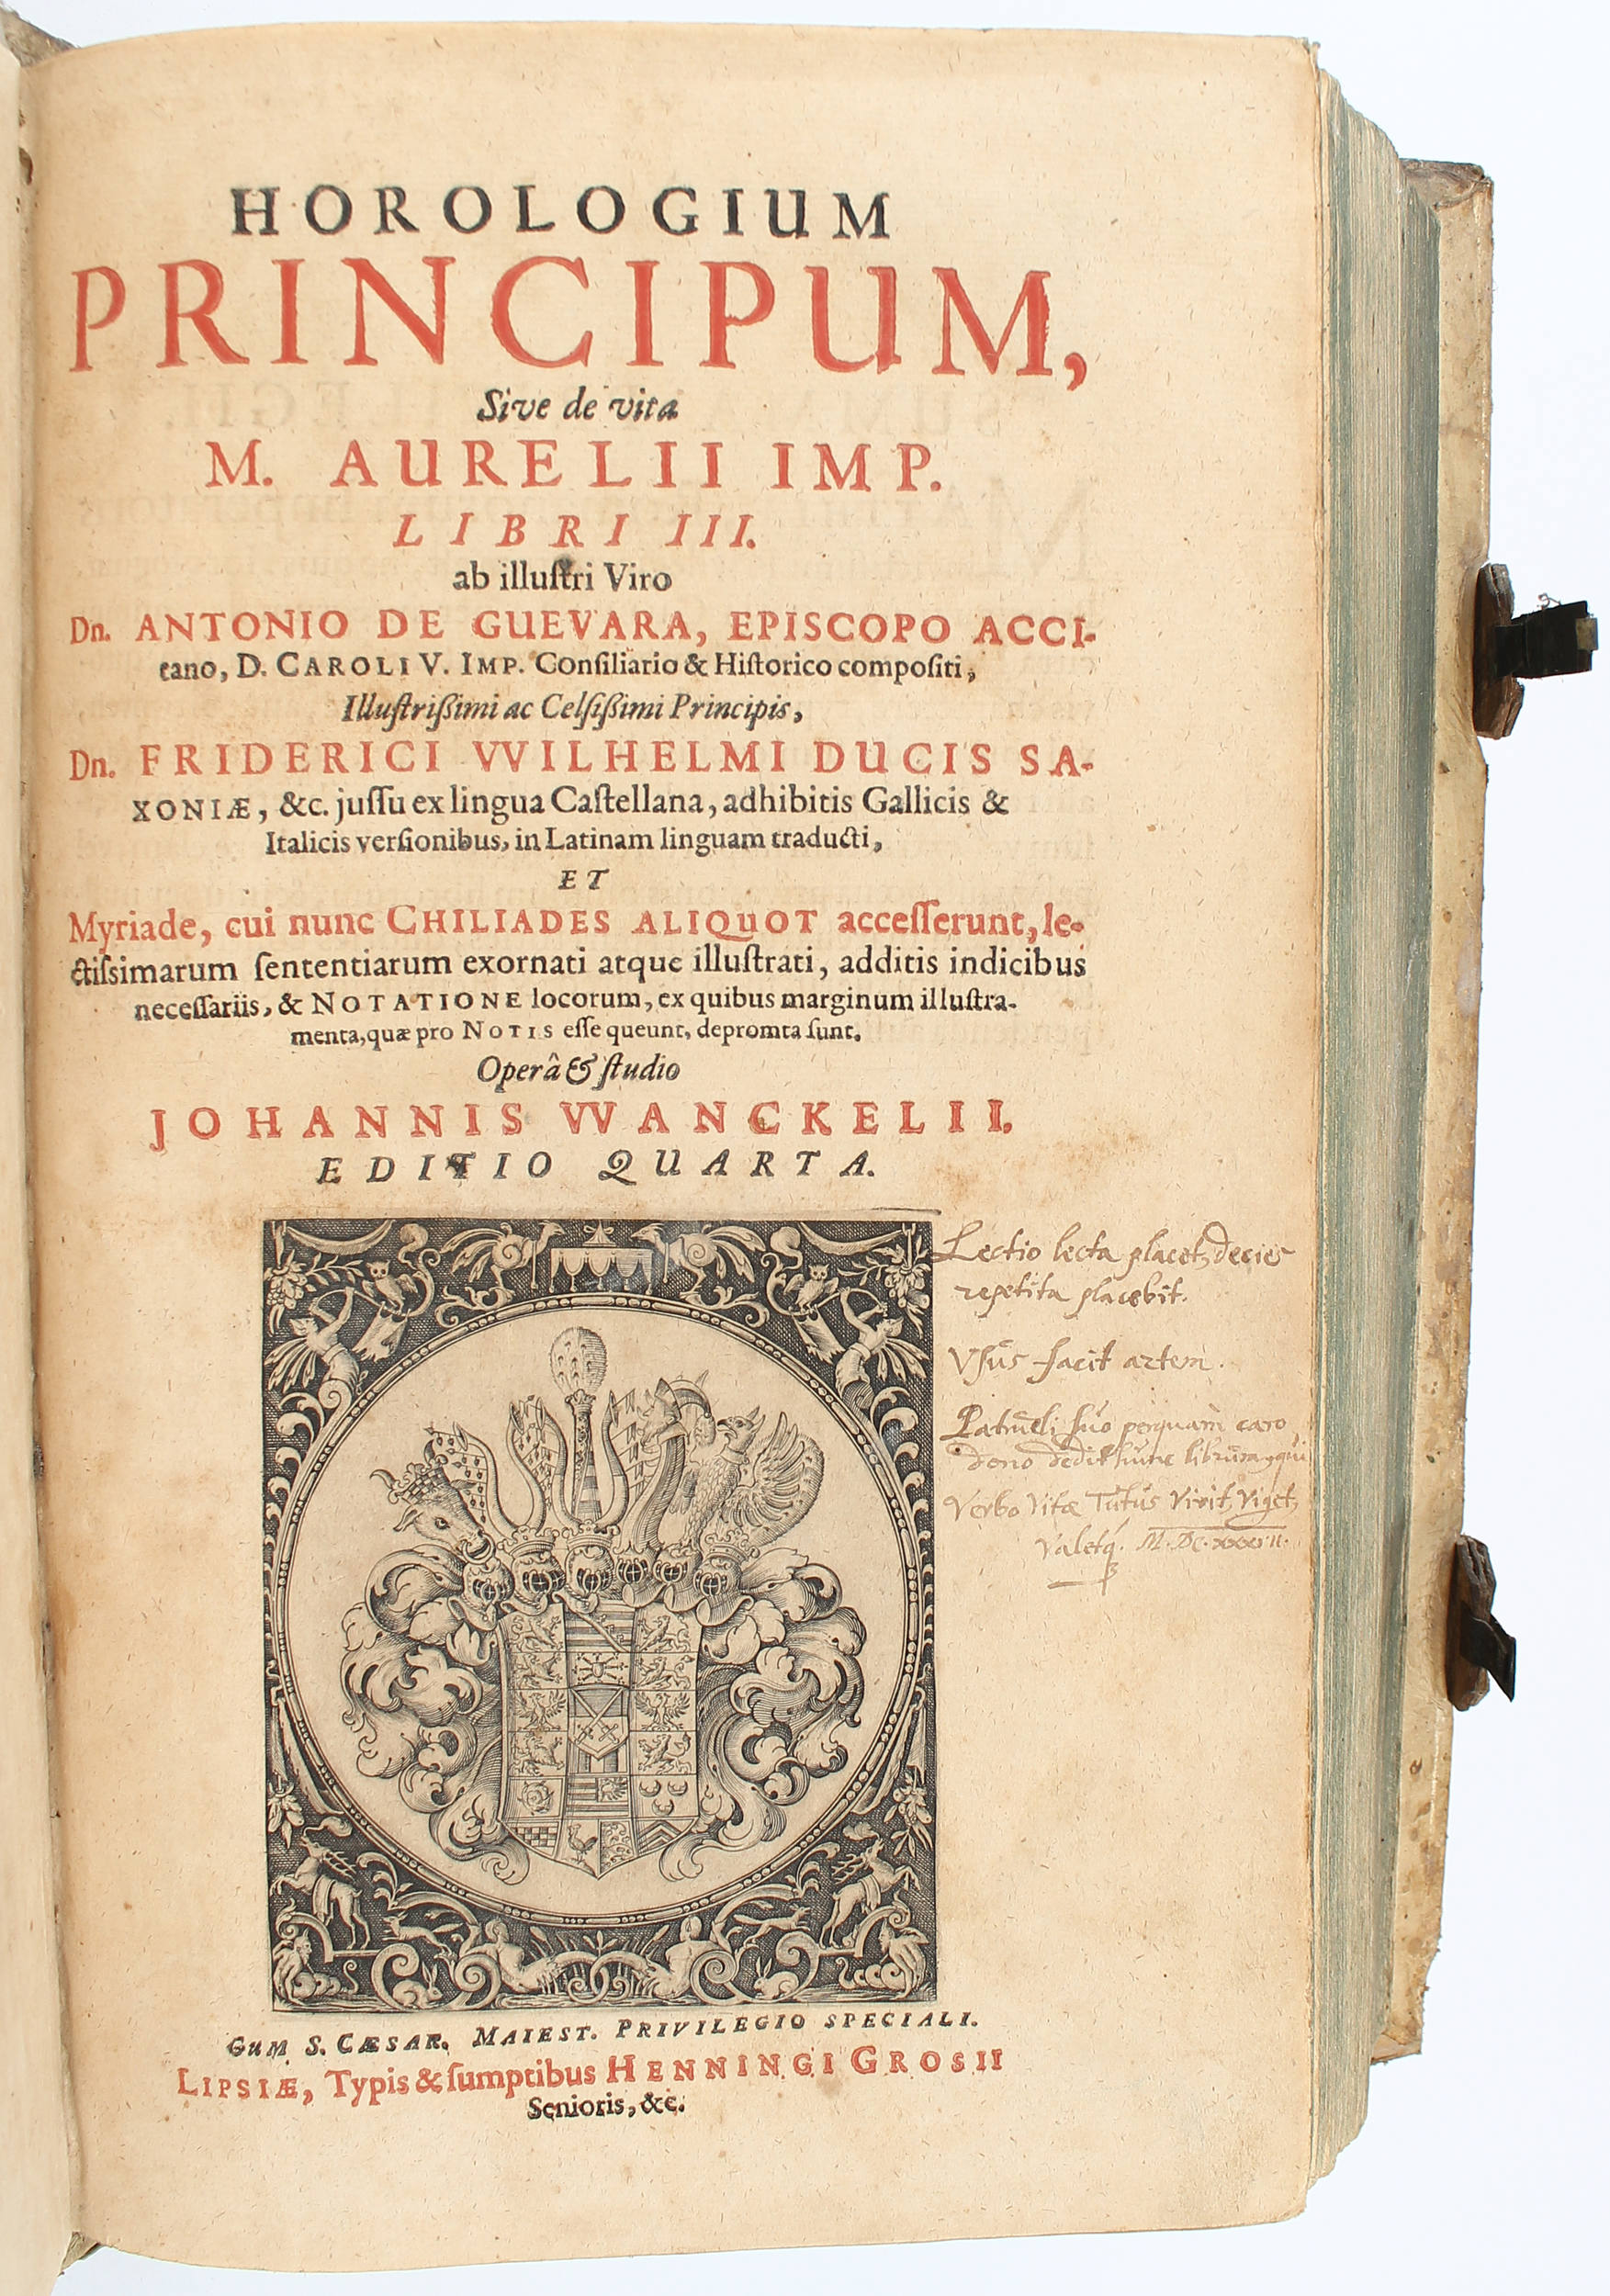 HOROLOGIUM
PRINCIPUM,
Sive de vita
M. AURELII IMP.
LIBRI III.
ab illuſtri Viro
Dn. ANTONIO DE GUEVARA, EPISCOPO ACCI-
tano, D. CAROLI V. IMP. Conſiliario & Hiſtorico compoſiti,
Illuſtrißimi ac Celſißimi Principis,
Dn. FRIDERICI WILHELMI DUCIS SA-
XONIÆ, &c. juſſu ex lingua Caſtellana, adhibitis Gallicis &
Italicis verſionibus, in Latinam linguam traducti,
ET
Myriade, cui nunc CHILIADES ALIQUOT acceſſerunt, le-
ctiſsimarum ſententiarum exornati atque illuſtrati, additis indicibus
neceſſariis, & NOTATIONE locorum, ex quibus marginum illuſtra-
menta, quæ pro NOTIS eſſe queunt, depromta ſunt.
Operâ & ſtudio
JOHANNIS WANCKELII.
EDITIO QUARTA.
Lectio lecta placet, decies
repetita placebit.
Vſus facit artem.
Patrueli ſuo perquam caro
dono dedit hunc librum, qui
Verbo Vitæ Tutus Vivit, Viget,
Valetq.
CUM S. CÆSAR. MAIEST. PRIVILEGIO SPECIALI.
LIPSIÆ, Typis & ſumptibus HENNINGI GROSII
Senioris, &c.